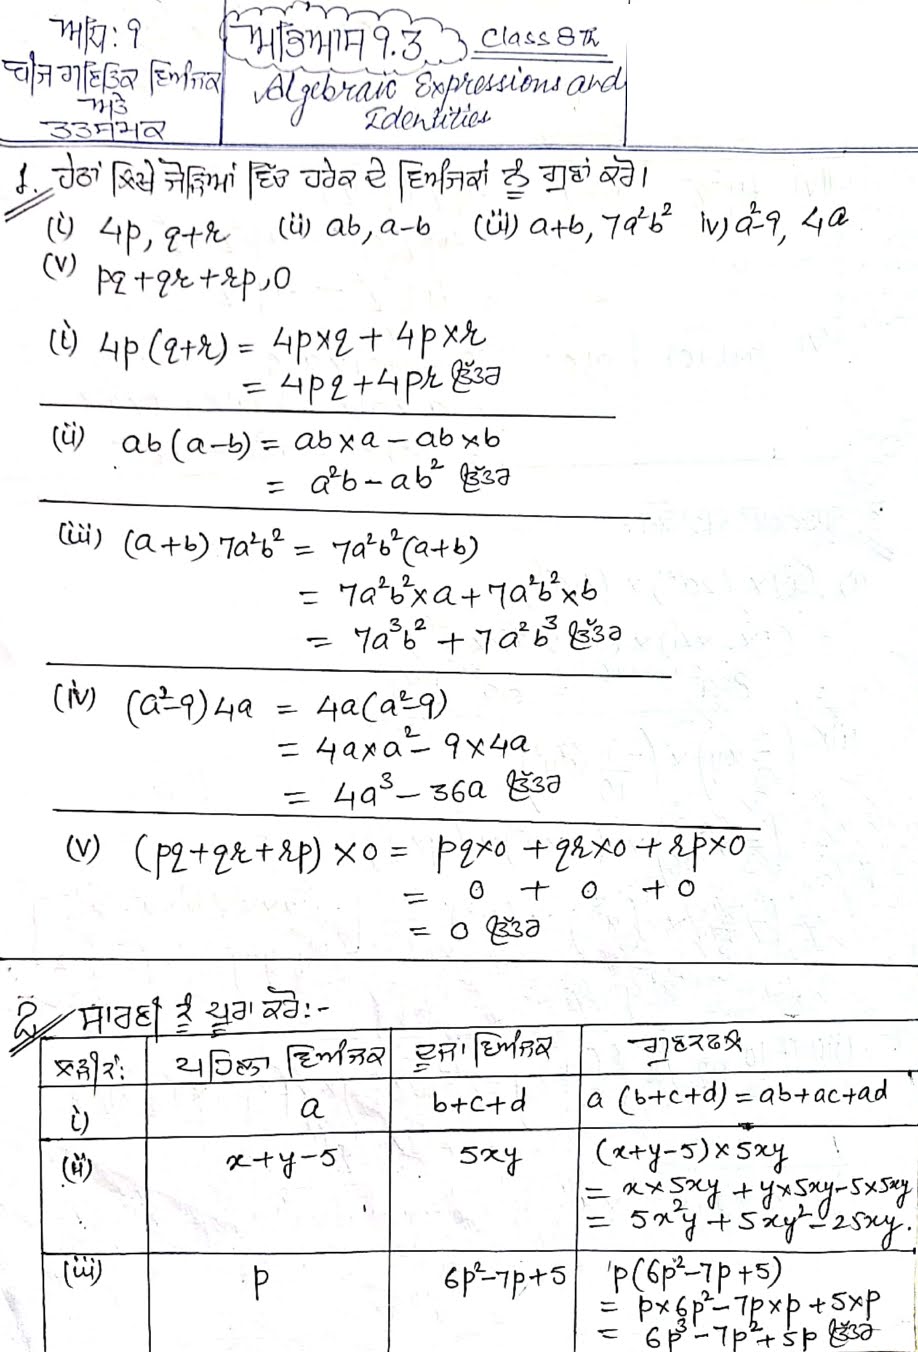 ਅਧਿ: 9
ਬੀਜ ਗਣਿਤਕ ਵਿਅੰਜਕ
ਅਤੇ
ਤਤਸਮਕ
ਅਭਿਆਸ 9.3 Class 8th
Algebraic Expressions and
Identities
1. ਹੇਠਾਂ ਲਿਖੇ ਜੋੜਿਆਂ ਵਿੱਚ ਹਰੇਕ ਦੇ ਵਿਅੰਜਕਾਂ ਨੂੰ ਗੁਣਾਂ ਕਰੋ।
(i) 4p, q+r (ii) ab, a-b (iii) a+b, 7a²b² iv) a²-9, 4a
(v) pq+qr+rp, 0
(i) 4p(q+r) = 4p×q + 4p×r
= 4pq+4pr ਉੱਤਰ
(ii) ab(a-b) = ab×a - ab×b
= a²b - ab² ਉੱਤਰ
(iii) (a+b) 7a²b² = 7a²b²(a+b)
= 7a²b²×a + 7a²b²×b
= 7a³b² + 7a²b³ ਉੱਤਰ
(iv) (a²-9)4a = 4a(a²-9)
= 4a×a² - 9×4a
= 4a³ - 36a ਉੱਤਰ
(v) (pq+qr+rp) ×0 = pq×0 + qr×0 + rp×0
= 0 + 0 + 0
= 0 ਉੱਤਰ
2. ਸਾਰਣੀ ਨੂੰ ਪੂਰਾ ਕਰੋ:-
ਲੜੀ ਨੰ: ਪਹਿਲਾ ਵਿਅੰਜਕ ਦੂਜਾ ਵਿਅੰਜਕ ਗੁਣਨਫਲ
i) a b+c+d a (b+c+d) = ab+ac+ad
(ii) x+y-5 5xy (x+y-5)×5xy
= x×5xy + y×5xy-5×5xy
= 5x²y + 5xy² - 25xy.
(iii) p 6p²-7p+5 p(6p²-7p+5)
= p×6p²-7p×p+5×p
= 6p³-7p²+5p ਉੱਤਰ